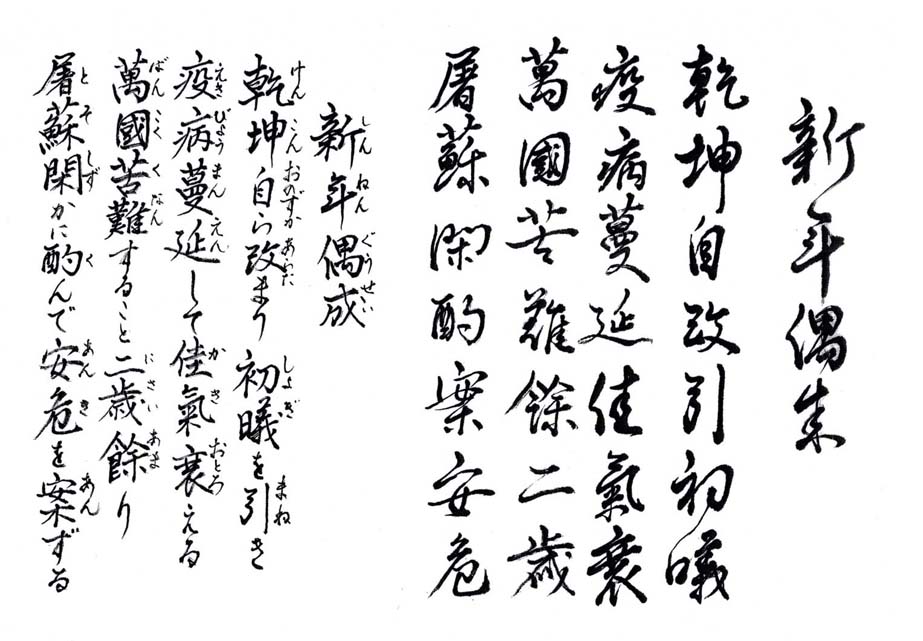 新年偶成
乾坤自改引初曦
疫病蔓延佳氣衰
萬國苦難餘二歳
屠蘇閑酌案安危
しんねんぐうせい
新年偶成
けんこんおのずかあらたしょぎまね
乾坤自ら改まり初曦を引き
えきびょうまんえんかきおとろ
疫病蔓延して佳氣衰える
ばんこくくなんにさいあま
萬國苦難すること二歳餘り
とそしずくあんきあん
屠蘇閑かに酌んで安危を案ずる